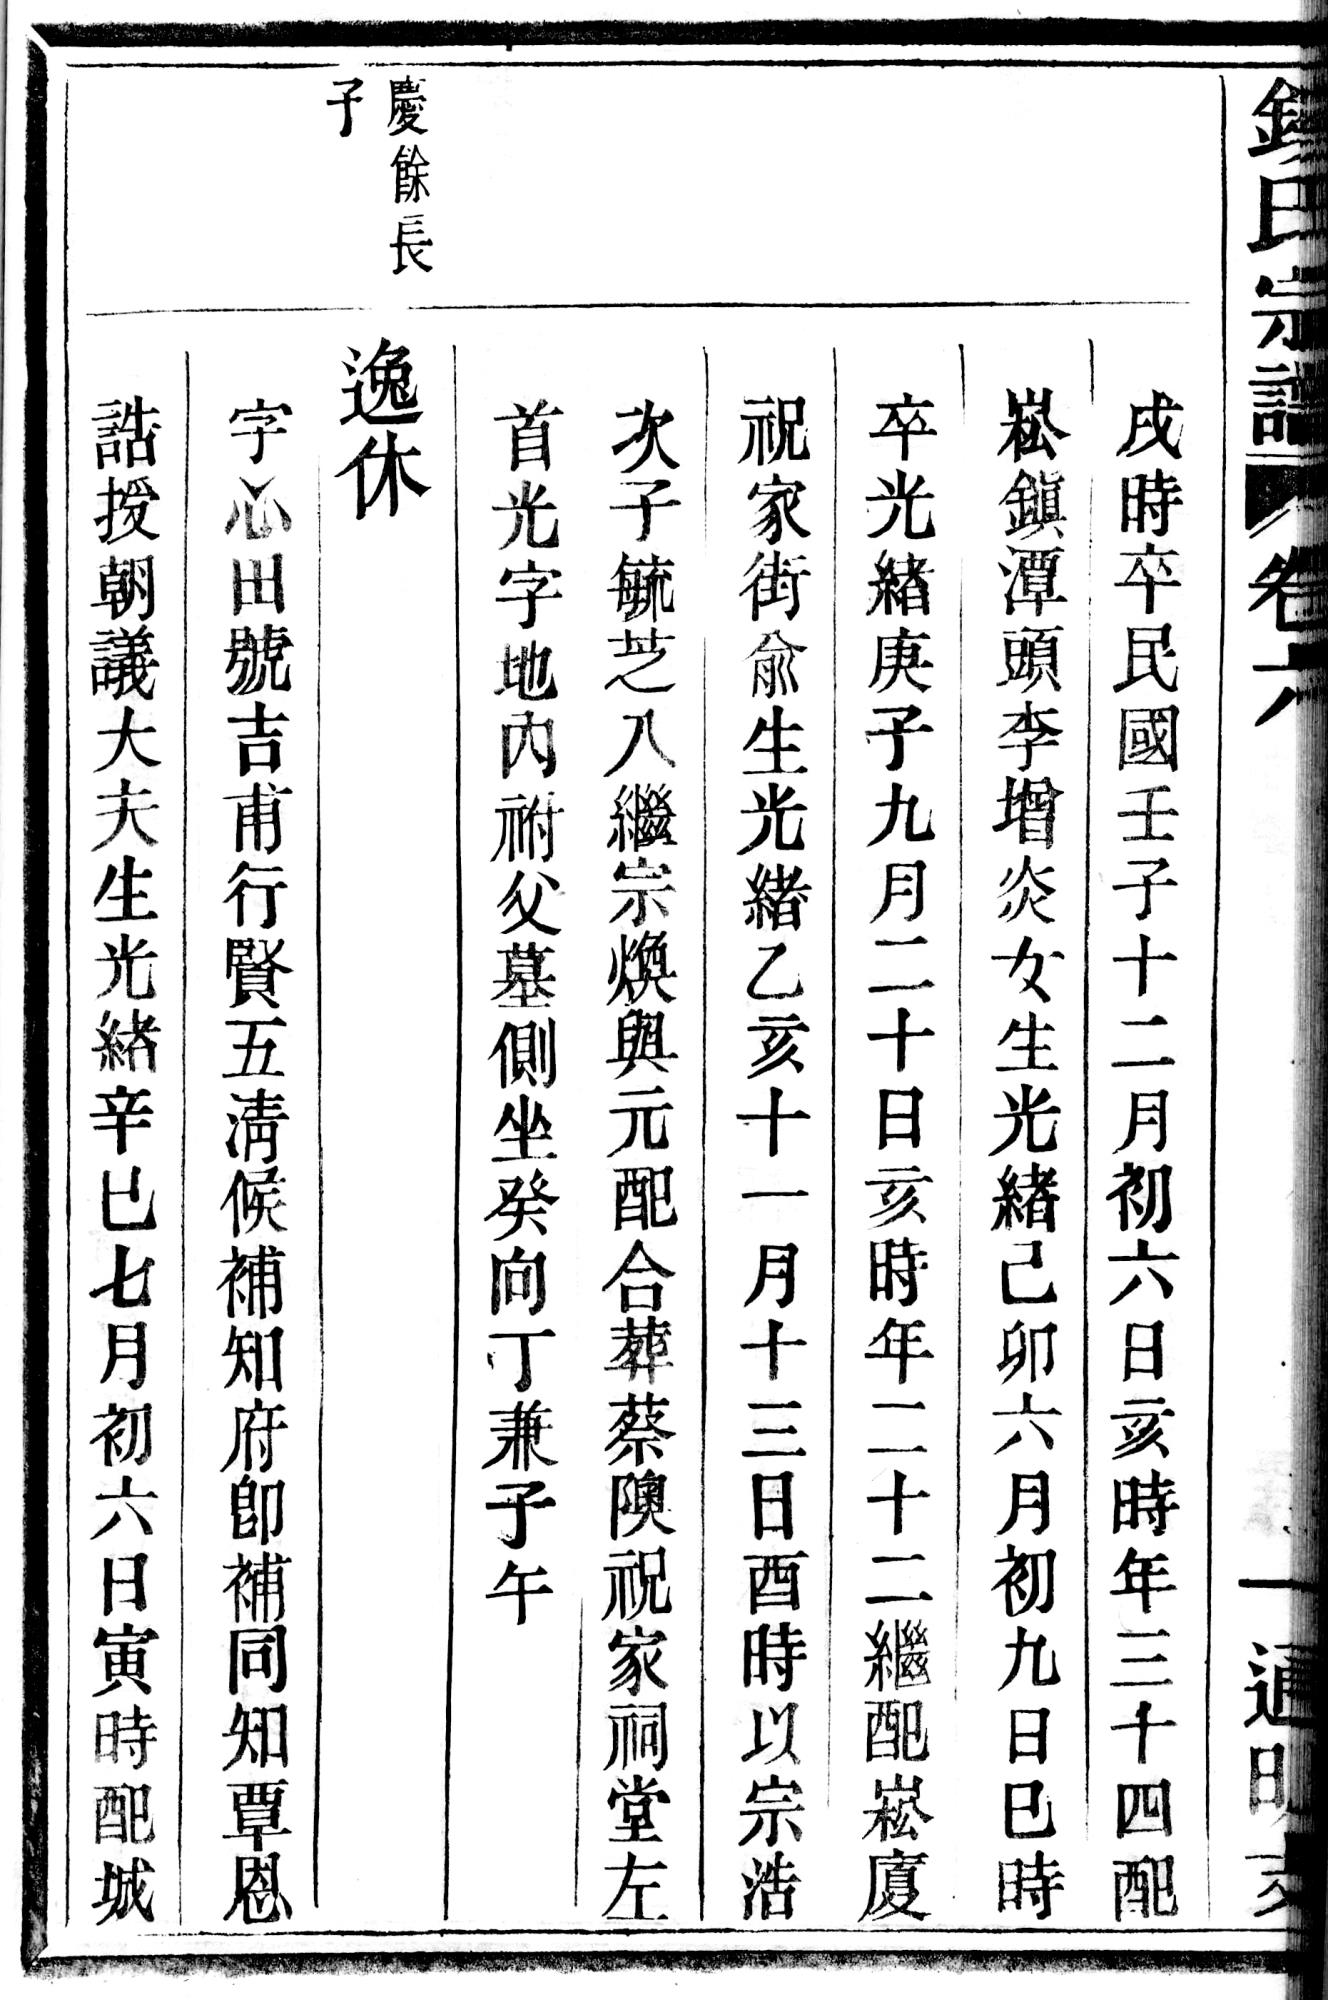 氏宗譜 卷六 一 通明
戌時卒民國壬子十二月初六日亥時年三十四配
崧鎮潭頭李增炎女生光緒己卯六月初九日巳時
卒光緒庚子九月二十日亥時年二十二繼配崧廈
祝家街俞生光緒乙亥十一月十三日酉時以宗浩
次子毓芝入繼宗煥與元配合葬蔡隩祝家祠堂左
首光字地內祔父墓側坐癸向丁兼子午
慶餘長
子
逸休
字心田號吉甫行賢五清候補知府卽補同知覃恩
誥授朝議大夫生光緒辛巳七月初六日寅時配城